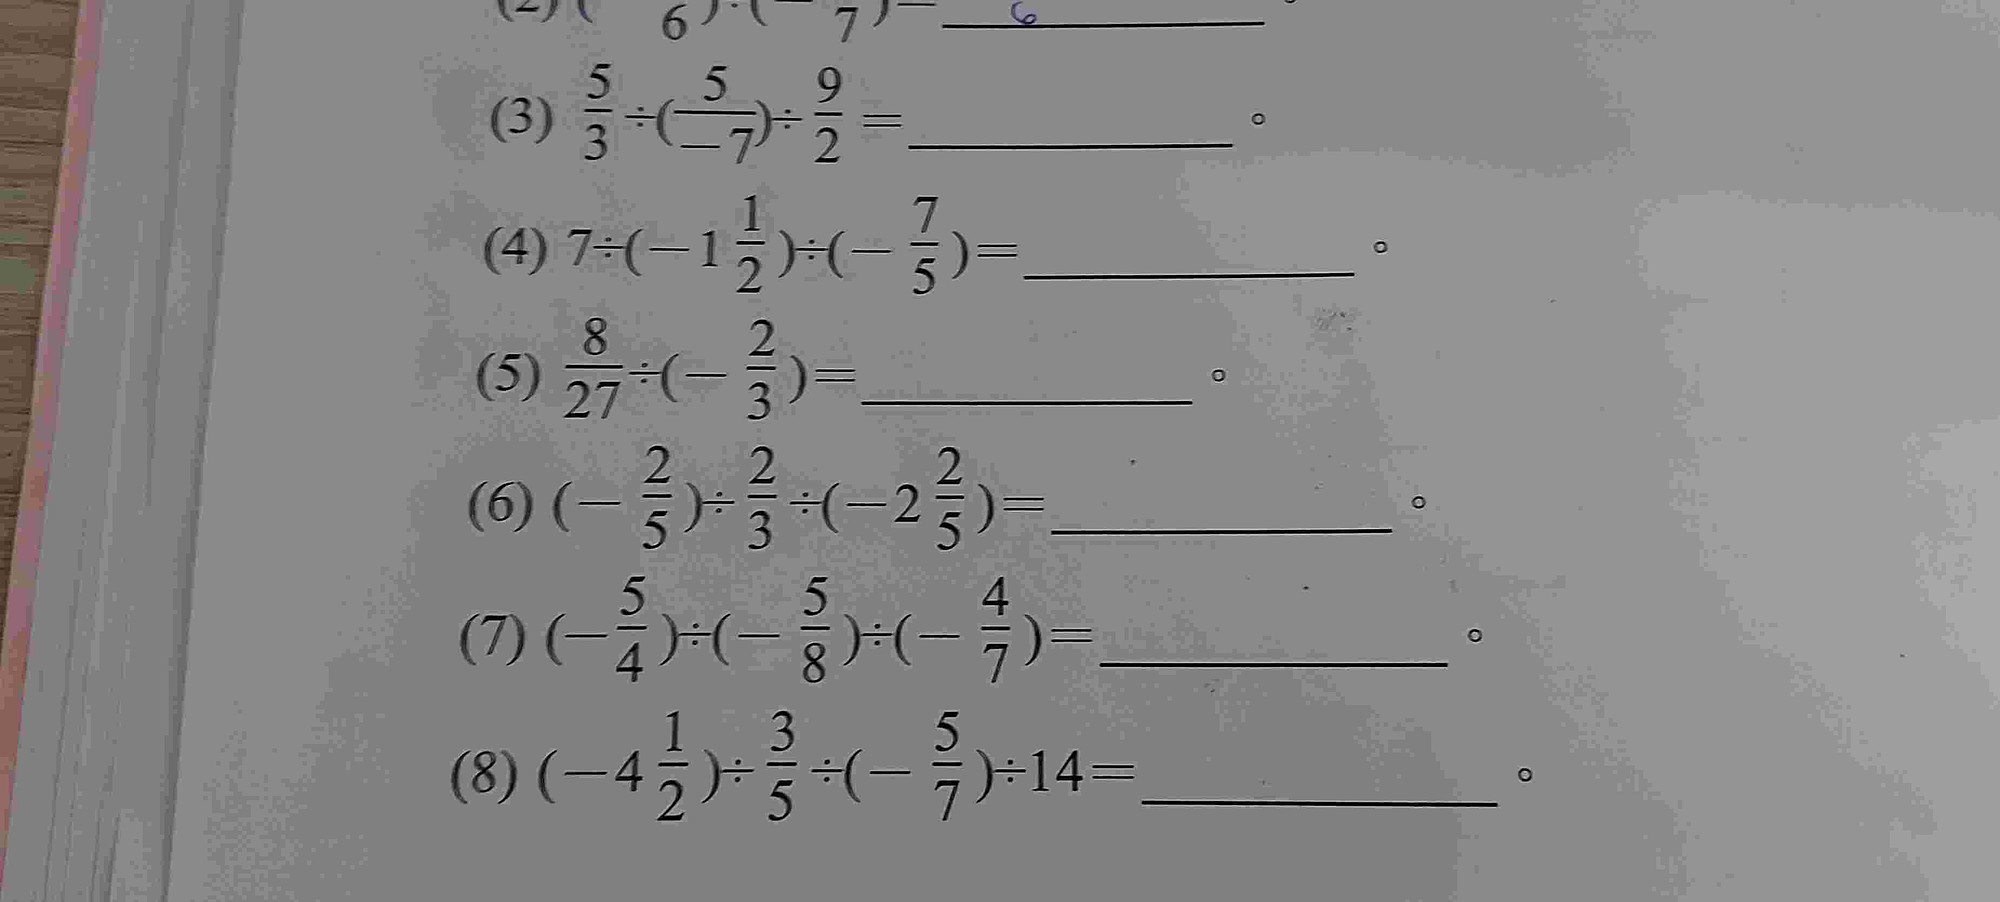 (3) 5/3÷(5/−7)÷9/2=________。
(4) 7÷(−1 1/2)÷(−7/5)=________。
(5) 8/27÷(−2/3)=________。
(6) (−2/5)÷2/3÷(−2 2/5)=________。
(7) (−5/4)÷(−5/8)÷(−4/7)=________。
(8) (−4 1/2)÷3/5÷(−5/7)÷14=________。